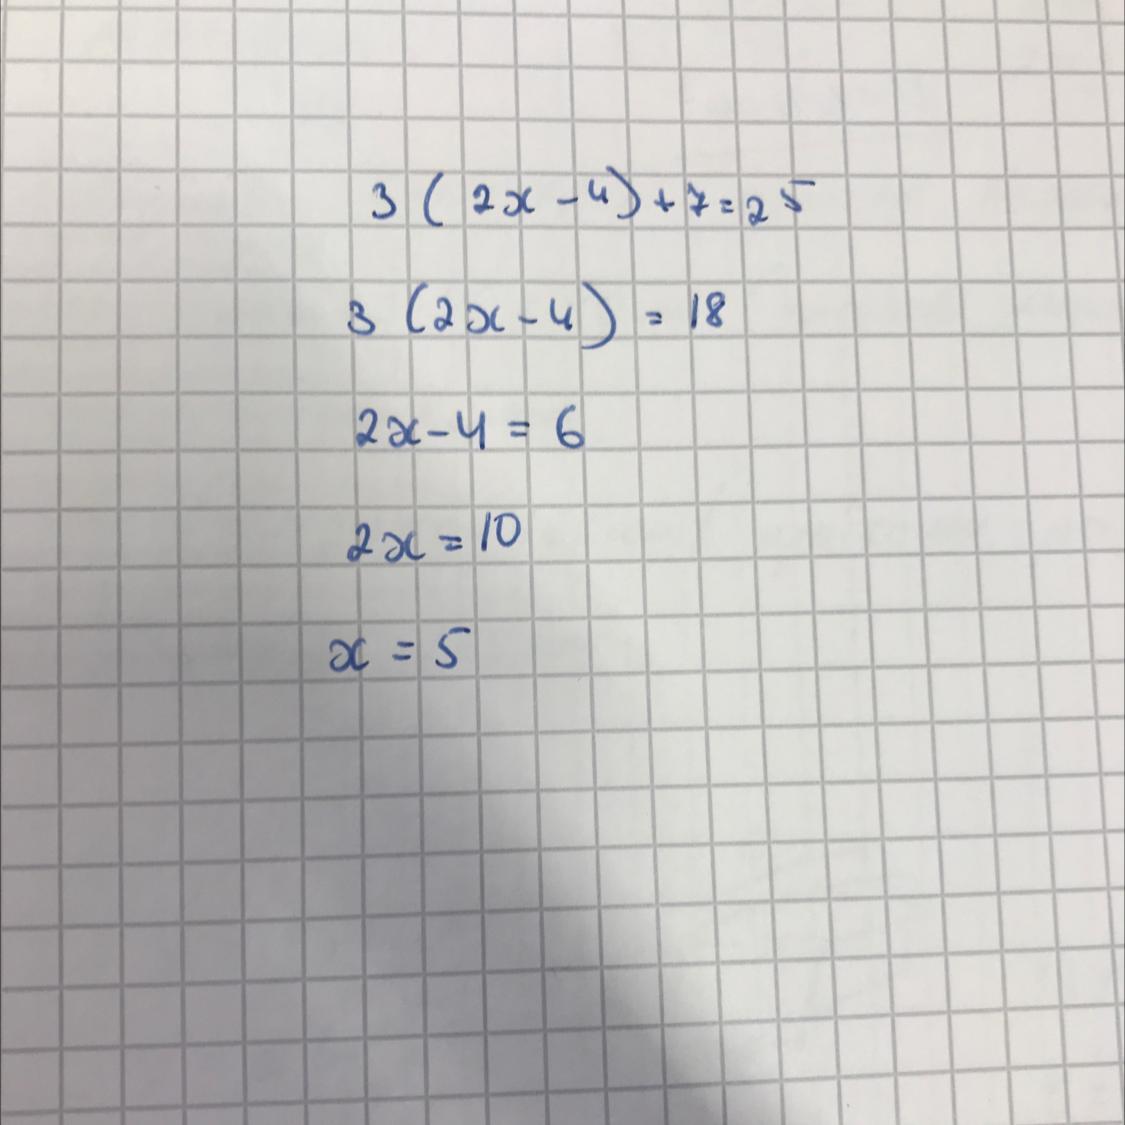 3 ( 2x - 4 ) + 7 = 25
3 ( 2x - 4 ) = 18
2x - 4 = 6
2x = 10
x = 5